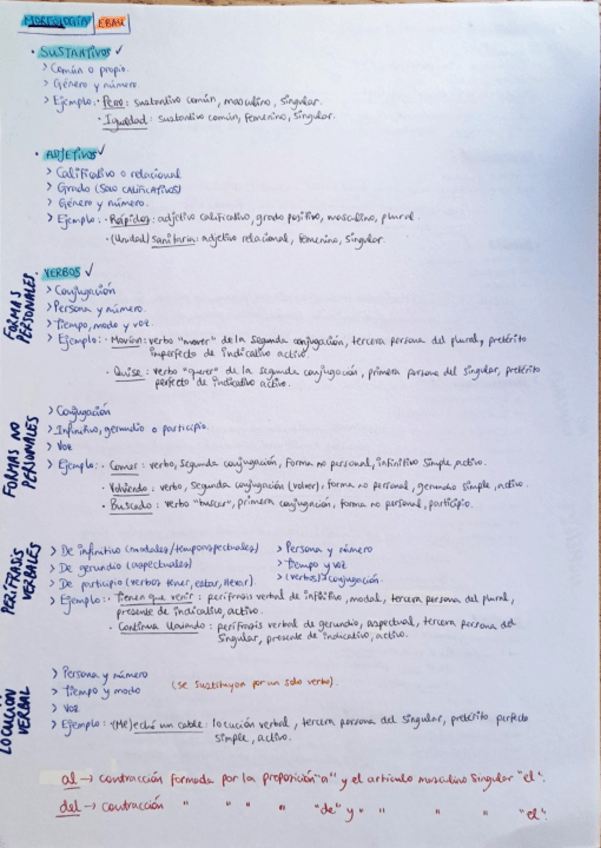 MORFOLOGÍA EBAU
• SUSTANTIVOS ✓
> Común o propio.
> Género y número
> Ejemplo: • Pero: sustantivo común, masculino, singular.
• Igualdad: sustantivo común, femenino, singular.
• ADJETIVOS ✓
> Calificativo o relacional
> Grado (SOLO CALIFICATIVOS)
> Género y número.
> Ejemplo: • Rápidos: adjetivo calificativo, grado positivo, masculino, plural.
• (Unidad) sanitaria: adjetivo relacional, femenino, singular.
FORMAS PERSONALES
• VERBOS ✓
> Conjugación
> Persona y número.
> Tiempo, modo y voz.
> Ejemplo: • Movían: verbo "mover" de la segunda conjugación, tercera persona del plural, pretérito
imperfecto de indicativo activo.
• Quise: verbo "querer" de la segunda conjugación, primera persona del singular, pretérito
perfecto de indicativo activo.
FORMAS NO PERSONALES
> Conjugación
> Infinitivo, gerundio o participio
> Voz
> Ejemplo: • Comer: verbo, segunda conjugación, forma no personal, infinitivo simple, activo.
• Volviendo: verbo, segunda conjugación (volver), forma no personal, gerundio simple, activo.
• Buscado: verbo "buscar", primera conjugación, forma no personal, participio.
PERÍFRASIS VERBALES
> De infinitivo (modales/tempoaspectuales) > Persona y número
> De gerundio (aspectuales) > Tiempo y voz
> De participio (verbos tener, estar, llevar). > (verbos) conjugación.
> Ejemplo: • Tienen que venir: perífrasis verbal de infinitivo, modal, tercera persona del plural,
presente de indicativo, activo.
• Continúa lloviendo: perífrasis verbal de gerundio, aspectual, tercera persona del
singular, presente de indicativo, activo.
LOCUCIÓN VERBAL
> Persona y número
> Tiempo y modo (se sustituyen por un solo verbo).
> Voz
> Ejemplo: (Me) echó un cable: locución verbal, tercera persona del singular, pretérito perfecto
simple, activo.
al → contracción formada por la preposición "a" y el artículo masculino singular "el".
del → contracción " " " " "de" y " " " " "el".